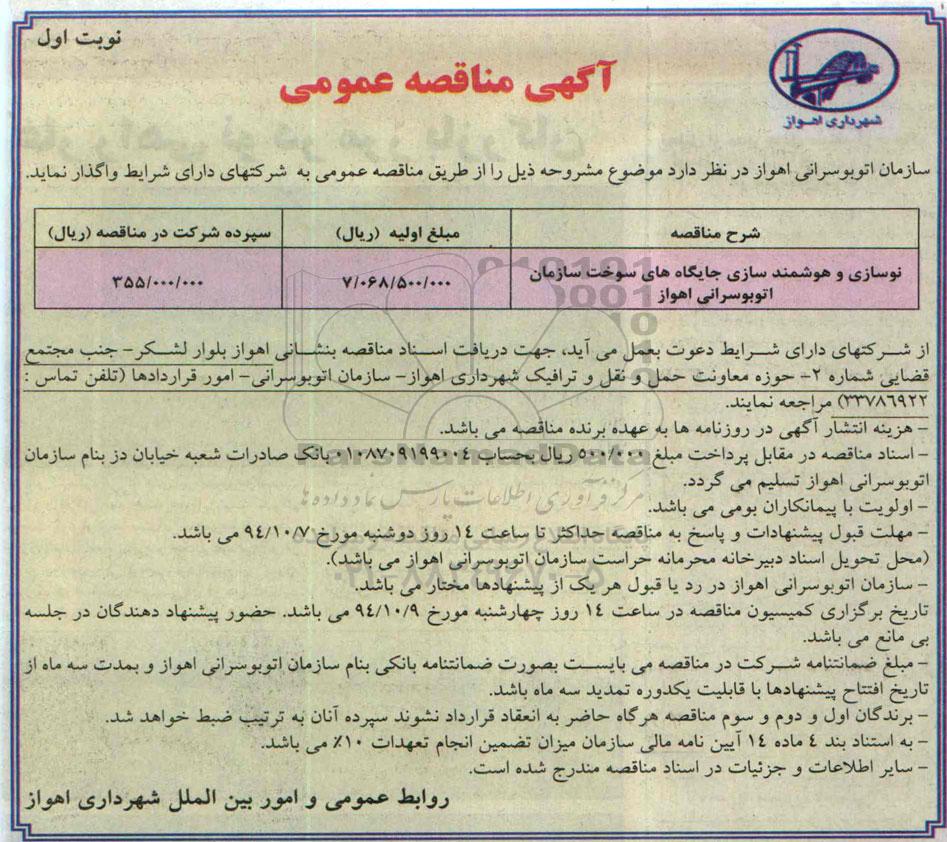 نوبت اول
شهرداری اهواز
آگهی مناقصه عمومی
سازمان اتوبوسرانی اهواز در نظر دارد موضوع مشروحه ذیل را از طریق مناقصه عمومی به شرکتهای دارای شرایط واگذار نماید.
شرح مناقصه
مبلغ اولیه (ریال)
سپرده شرکت در مناقصه (ریال)
نوسازی و هوشمند سازی جایگاه های سوخت سازمان
اتوبوسرانی اهواز
۷/۰۶۸/۵۰۰/۰۰۰
۳۵۵/۰۰۰/۰۰۰
از شرکتهای دارای شرایط دعوت بعمل می آید، جهت دریافت اسناد مناقصه بنشانی اهواز بلوار لشکر- جنب مجتمع
قضایی شماره ۲- حوزه معاونت حمل و نقل و ترافیک شهرداری اهواز- سازمان اتوبوسرانی- امور قراردادها (تلفن تماس :
۳۳۷۸۶۹۲۲) مراجعه نمایند.
- هزینه انتشار آگهی در روزنامه ها به عهده برنده مناقصه می باشد.
- اسناد مناقصه در مقابل پرداخت مبلغ ۵۰۰/۰۰۰ ریال بحساب ۰۱۰۸۷۰۹۱۹۹۰۰۴ بانک صادرات شعبه خیابان دز بنام سازمان
اتوبوسرانی اهواز تسلیم می گردد.
- اولویت با پیمانکاران بومی می باشد.
- مهلت قبول پیشنهادات و پاسخ به مناقصه حداکثر تا ساعت ۱۴ روز دوشنبه مورخ ۹۴/۱۰/۷ می باشد.
(محل تحویل اسناد دبیرخانه محرمانه حراست سازمان اتوبوسرانی اهواز می باشد).
- سازمان اتوبوسرانی اهواز در رد یا قبول هر یک از پیشنهادها مختار می باشد.
تاریخ برگزاری کمیسیون مناقصه در ساعت ۱۴ روز چهارشنبه مورخ ۹۴/۱۰/۹ می باشد. حضور پیشنهاد دهندگان در جلسه
بی مانع می باشد.
- مبلغ ضمانتنامه شرکت در مناقصه می بایست بصورت ضمانتنامه بانکی بنام سازمان اتوبوسرانی اهواز و بمدت سه ماه از
تاریخ افتتاح پیشنهادها با قابلیت یکدوره تمدید سه ماه باشد.
- برندگان اول و دوم و سوم مناقصه هرگاه حاضر به انعقاد قرارداد نشوند سپرده آنان به ترتیب ضبط خواهد شد.
- به استناد بند ٤ ماده ۱٤ آیین نامه مالی سازمان میزان تضمین انجام تعهدات ۱۰٪ می باشد.
- سایر اطلاعات و جزئیات در اسناد مناقصه مندرج شده است.
روابط عمومی و امور بین الملل شهرداری اهواز
ParsNamadData
مرکز فرآوری اطلاعات پارس نماد داده ها